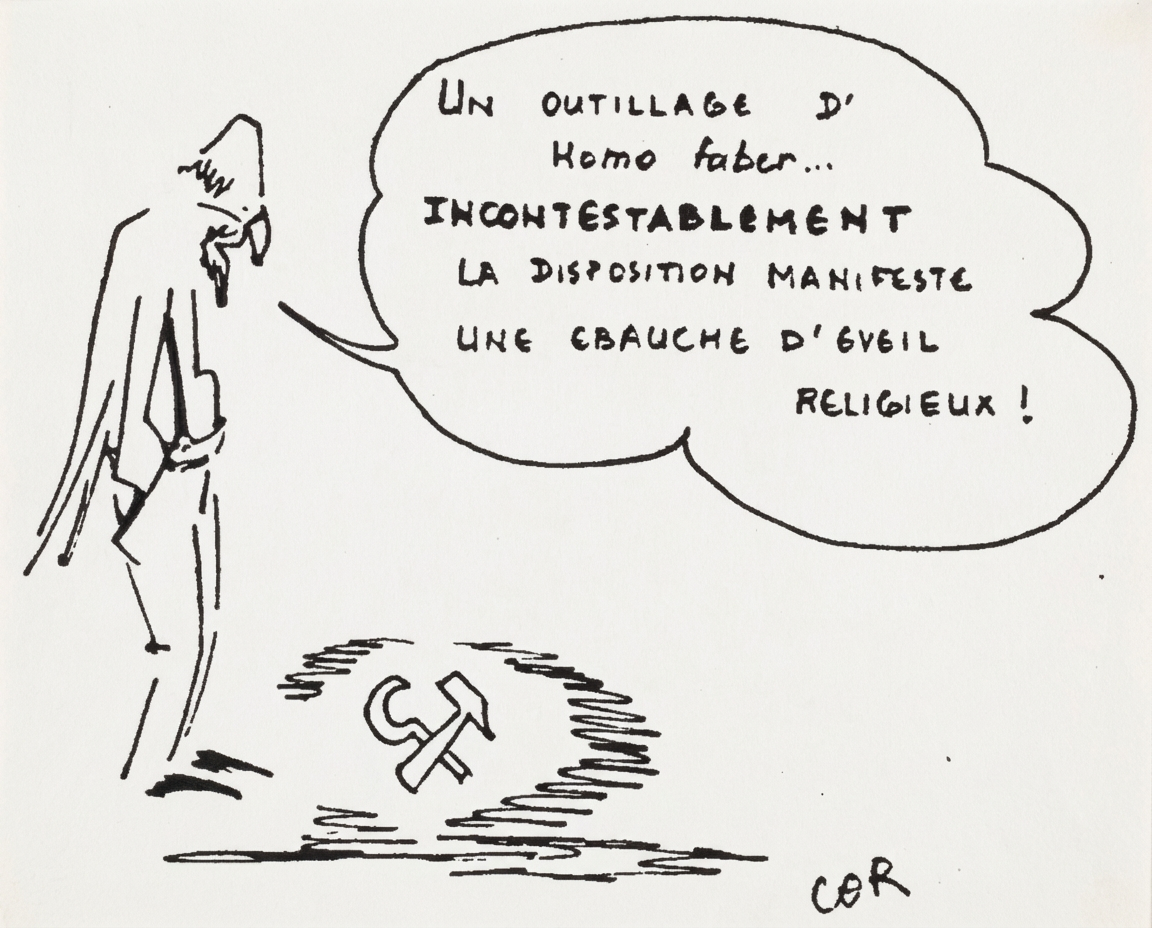 UN OUTILLAGE D'
Homo faber...
INCONTESTABLEMENT
LA DISPOSITION MANIFESTE
UNE EBAUCHE D'EVEIL
RELIGIEUX !
COR